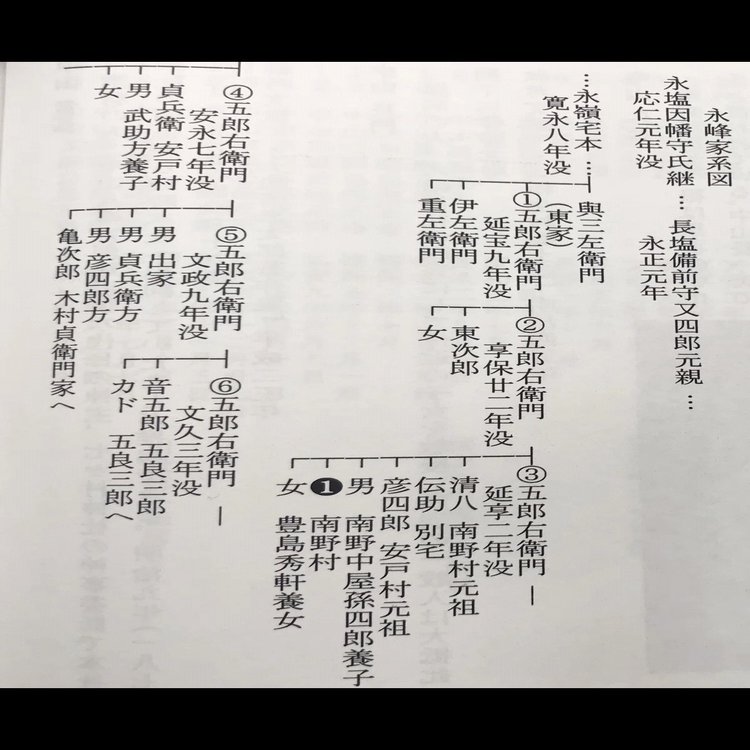 永峰家系図
永塩因幡守氏継 … 長塩備前守又四郎元親 …
応仁元年没
永正元年
…永嶺宅本 …
寛永八年没
與三左衛門
(東家)
①五郎右衛門
延宝九年没
伊左衛門
重左衛門
②五郎右衛門
享保廿二年没
東次郎
女
③五郎右衛門
延享二年没
清八 南野村元祖
伝助 別宅
彦四郎 安戸村元祖
男 南野中屋孫四郎養子
❶ 南野村
女 豊島秀軒養女
④五郎右衛門
安永七年没
貞兵衛 安戸村
男 武助方養子
女
⑤五郎右衛門
文政九年没
男 出家
男 貞兵衛方
男 彦四郎方
亀次郎 木村貞衛門家へ
⑥五郎右衛門
文久三年没
音五郎 五良三郎
カド 五良三郎へ